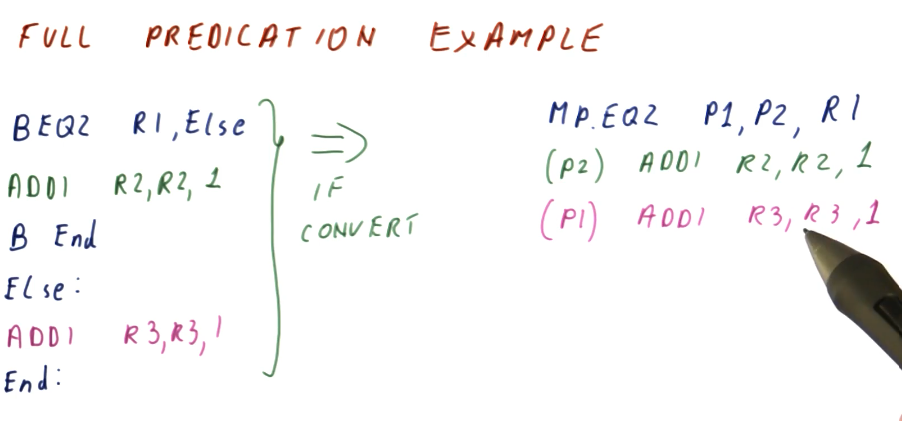 FULL PREDICATION EXAMPLE
BEQZ R1,Else
ADDI R2,R2,1
B End
Else:
ADDI R3,R3,1
End:
⇒
IF
CONVERT
MP.EQZ P1,P2,R1
(P2) ADDI R2,R2,1
(P1) ADDI R3,R3,1